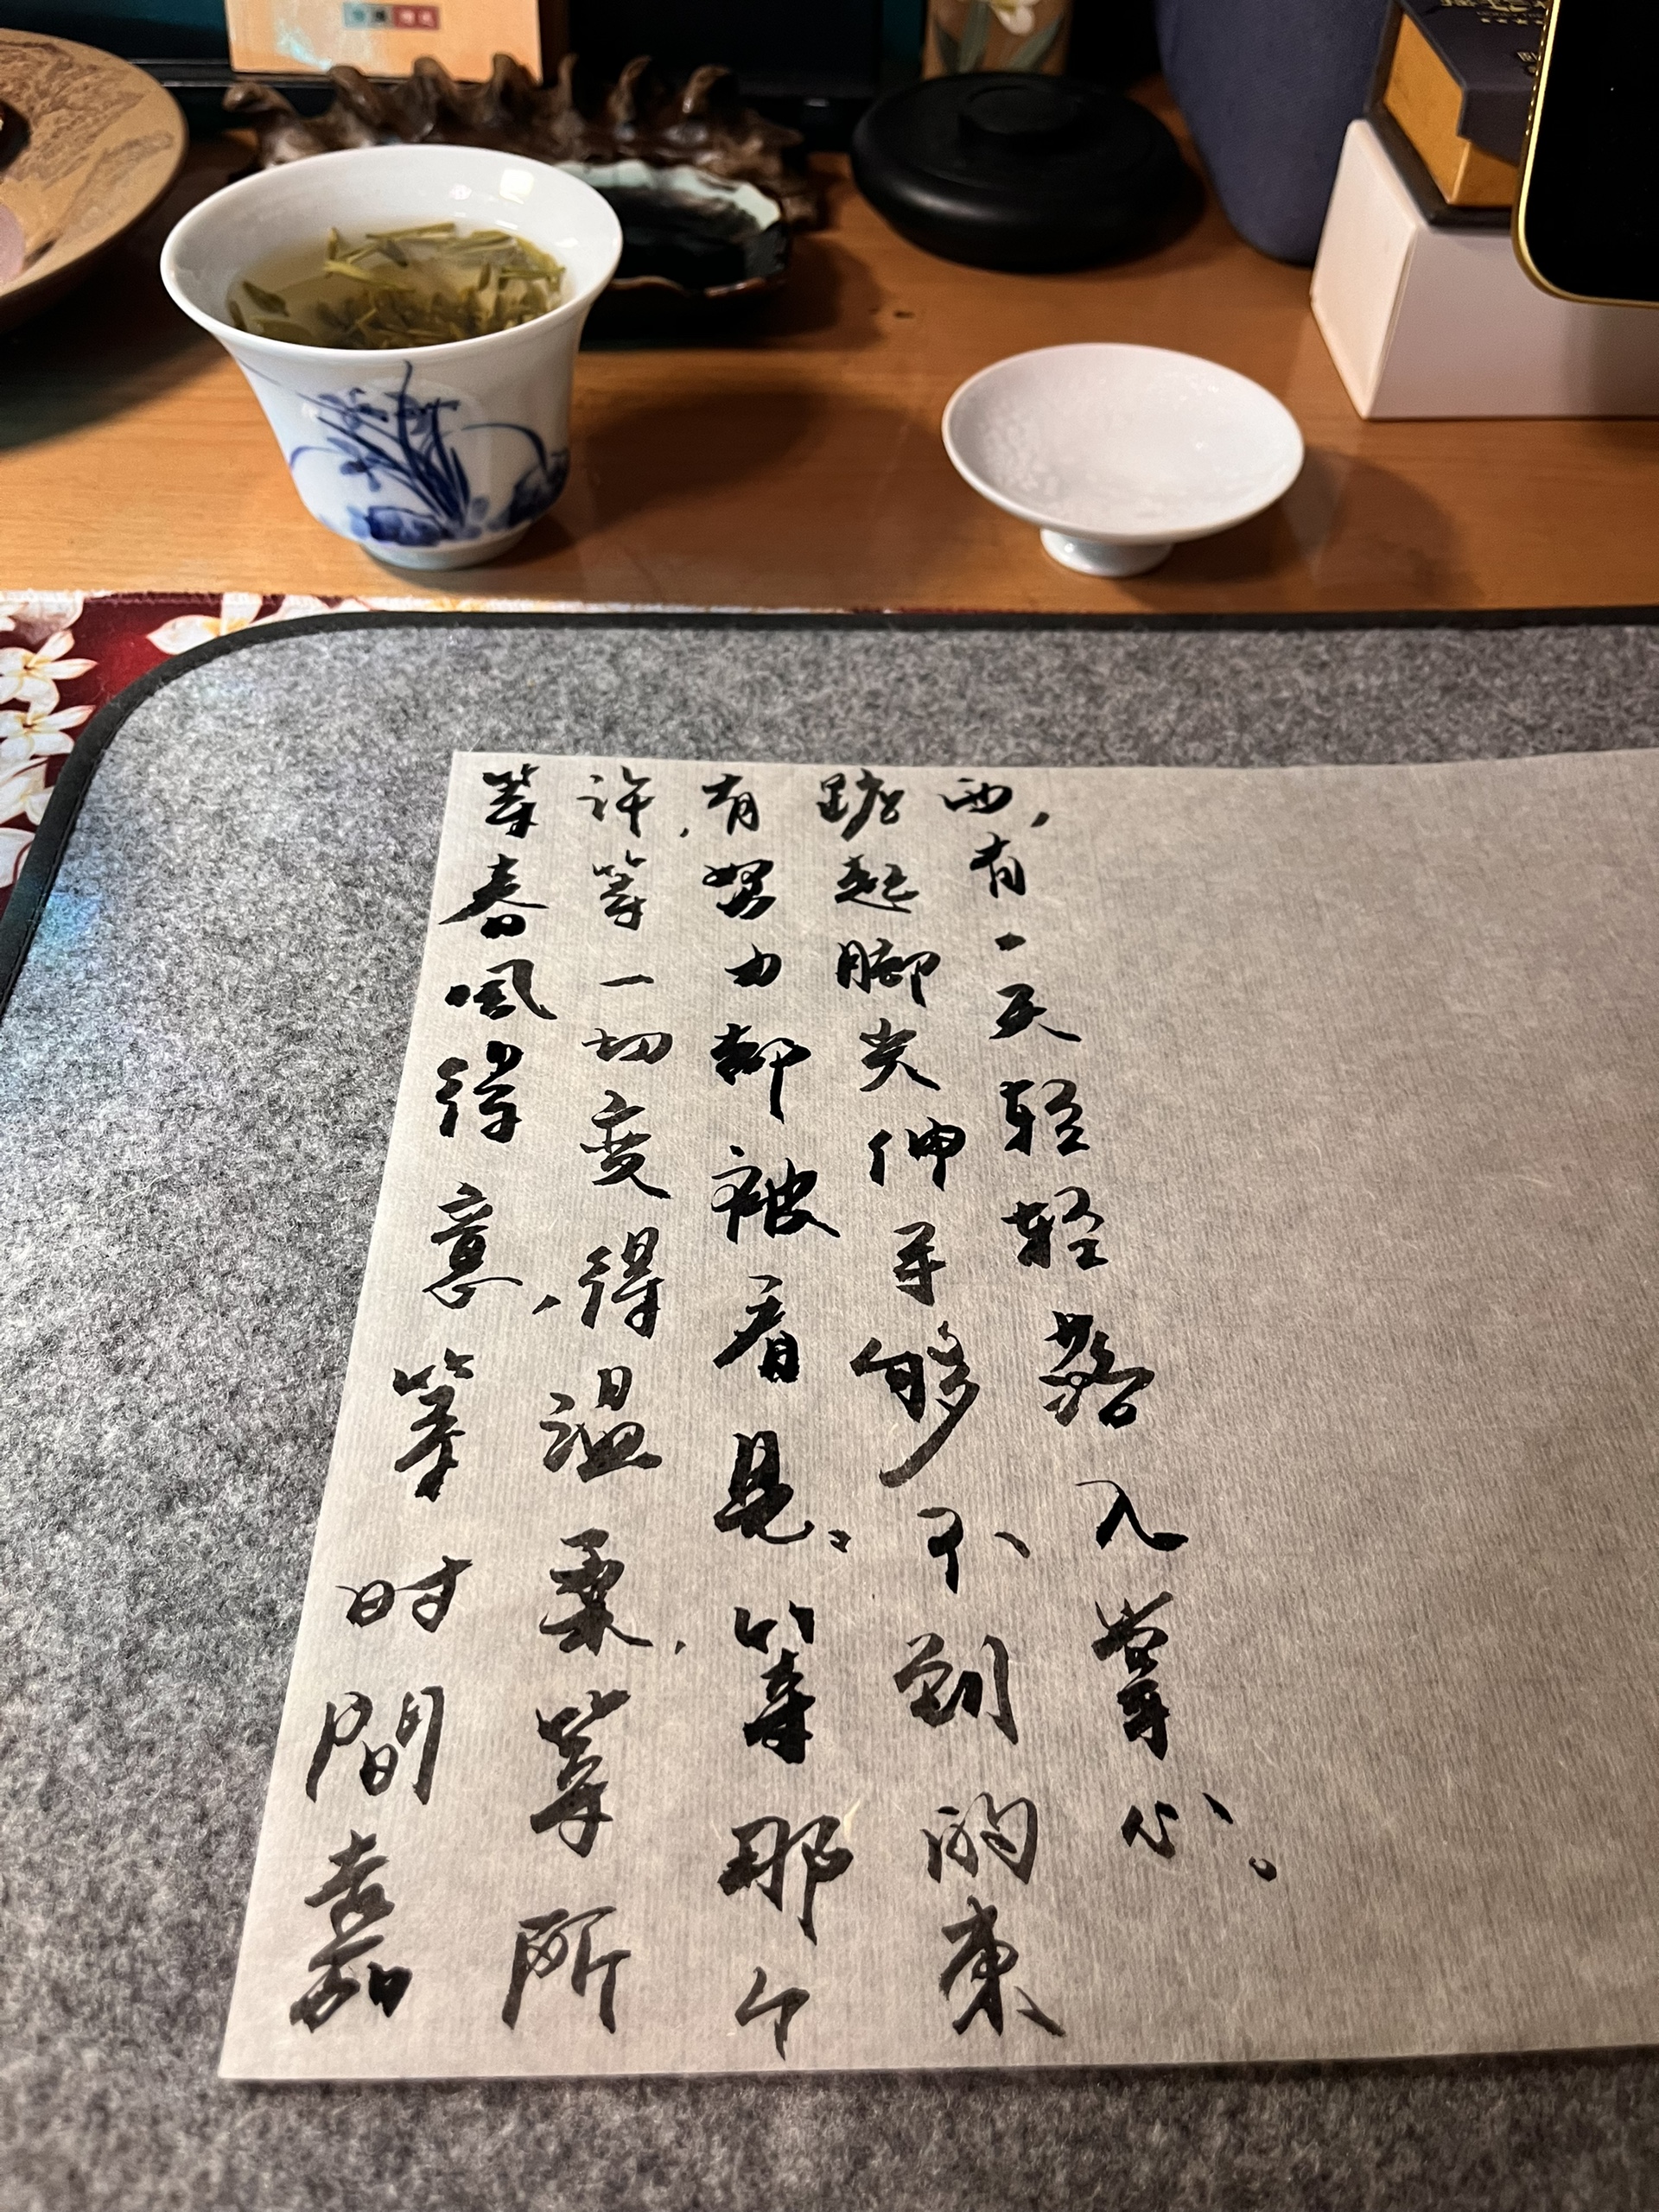 等春風得意，等时間嘉
许，等一切变得温柔，等所
有努力都被看見。等那个
踮起脚尖伸手够不到的东
西，有一天轻轻落入掌心。